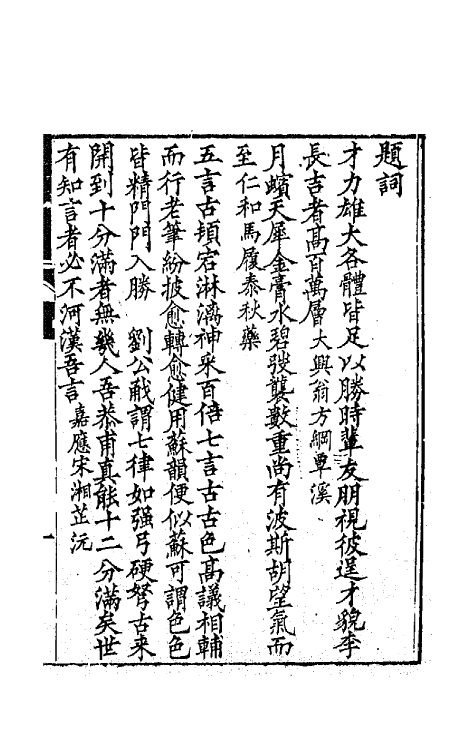 題詞
才力雄大各體皆足以勝時輩友朋視彼逞才貌李
長吉者高百萬層大興翁方綱覃溪
月蠙天犀金膏水碧彀龔數重尚有波斯胡望氣而
至仁和馬履泰秋藥
五言古頓宕淋漓神采百倍七言古古色高議相輔
而行老筆紛披愈轉愈健用蘇韻便似蘇可謂色色
皆精門門入勝 劉公㦷謂七律如强弓硬弩古來
開到十分滿者無幾人吾恭甫真能十二分滿矣世
有知言者必不河漢吾言嘉應宋湘芷沅